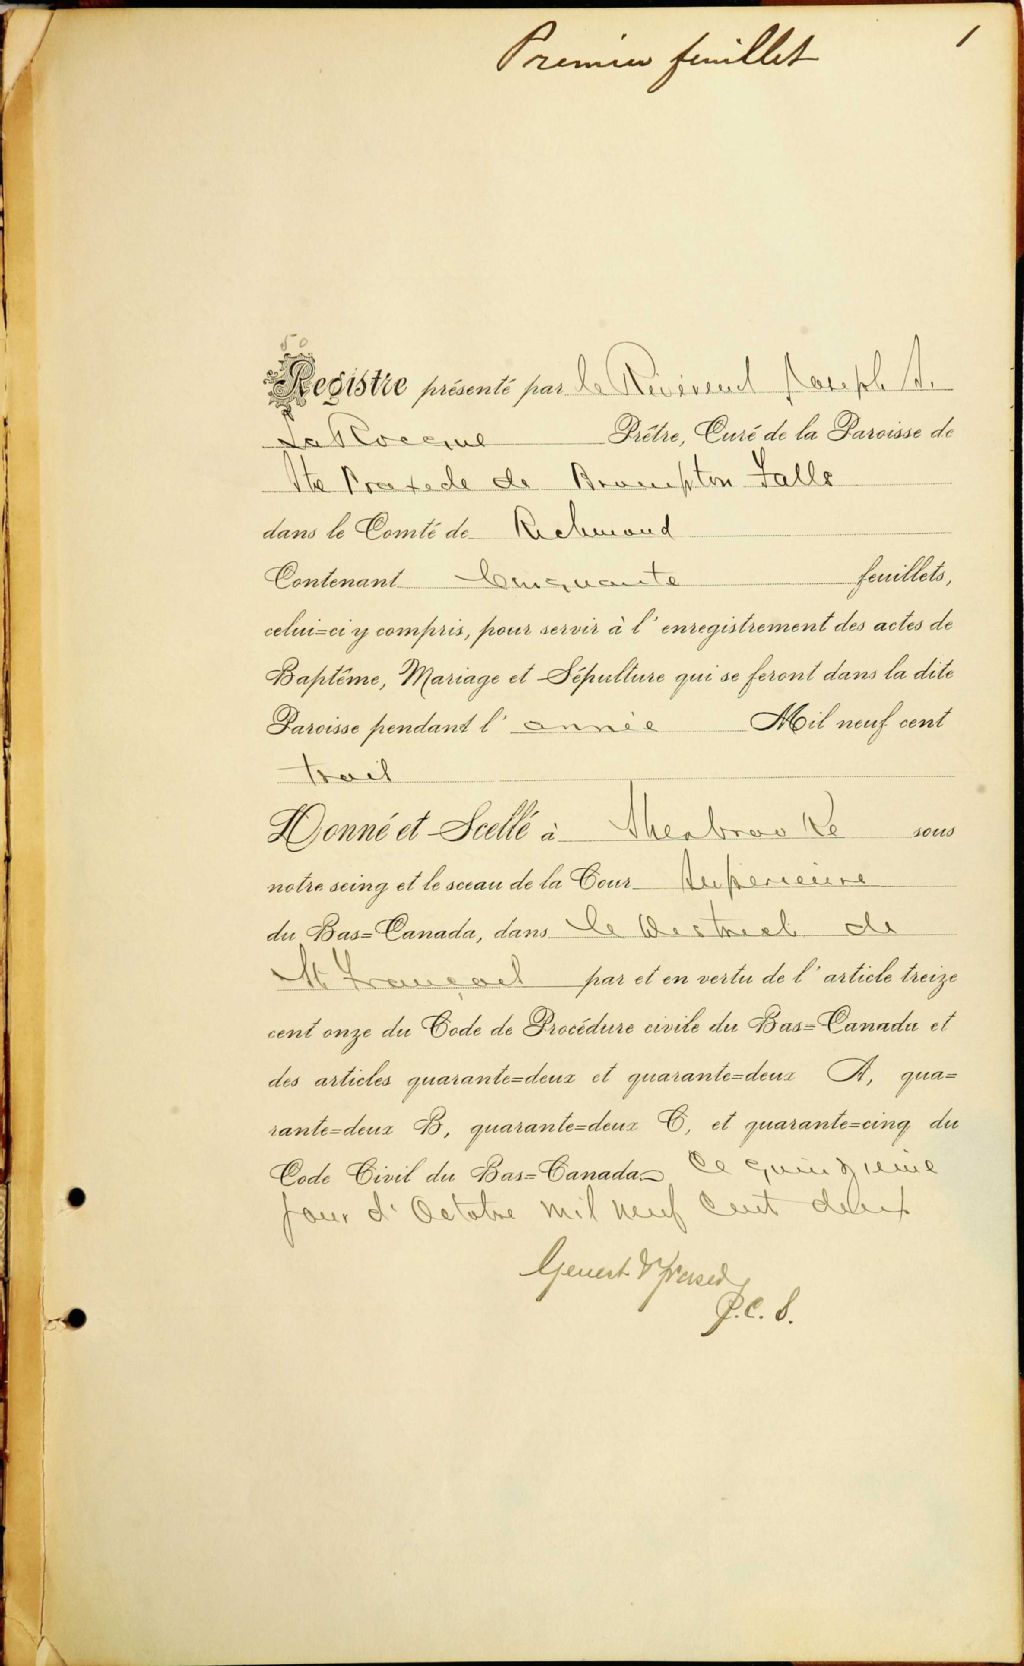 Premier feuillet
1
50
Registre présenté par le Révérend Joseph A.
LaRocque Prêtre, Curé de la Paroisse de
Ste Praxede de Brompton Falls
dans le Comté de Richmond
Contenant Cinquante feuillets,
celui=ci y compris, pour servir à l'enregistrement des actes de
Baptême, Mariage et Sépulture qui se feront dans la dite
Paroisse pendant l'année Mil neuf cent
trois
Donné et Scellé à Sherbrooke sous
notre seing et le sceau de la Cour Supérieure
du Bas=Canada, dans le District de
St François par et en vertu de l'article treize
cent onze du Code de Procédure civile du Bas=Canada et
des articles quarante=deux et quarante=deux A, qua=
rante=deux B, quarante=deux C, et quarante=cinq du
Code Civil du Bas=Canada Ce quinzieme
jour d'Octobre mil neuf cent deux
P.C.S.